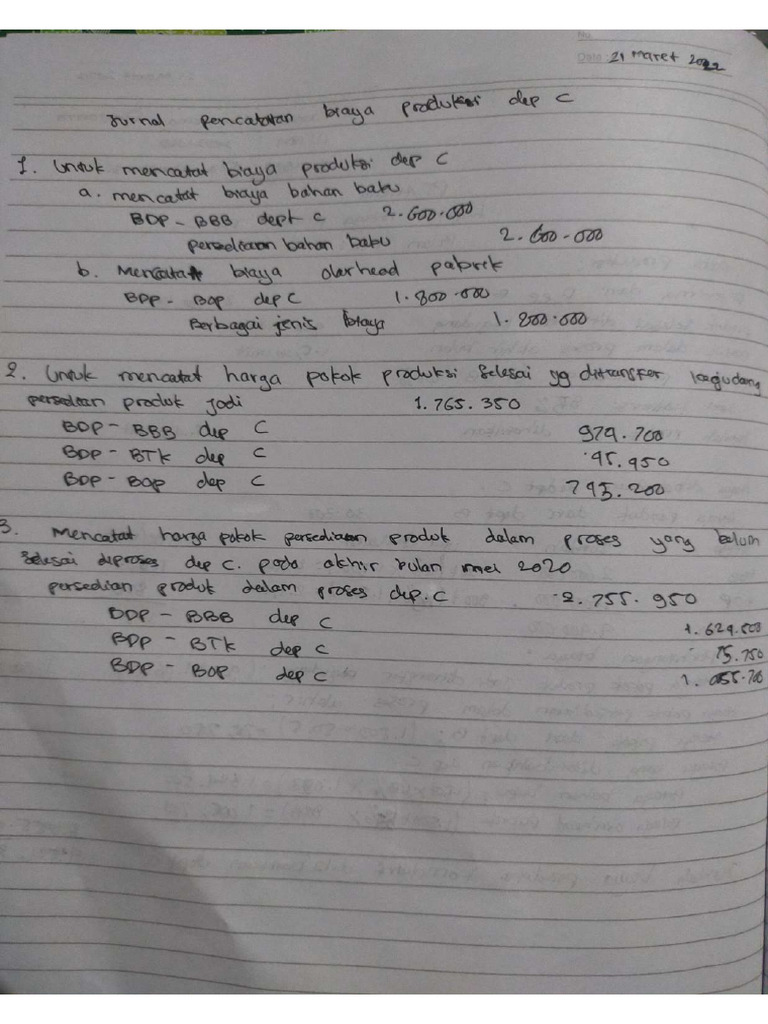 No.
Date: 21 Maret 2022
Jurnal pencatatan biaya produksi dep C
1. Untuk mencatat biaya produksi dep C
a. mencatat biaya bahan baku
BDP - BBB dept C 2.600.000
persediaan bahan baku 2.600.000
b. Mencatat biaya olarhead pabrik
BDP - BOP dep C 1.800.000
Berbagai jenis biaya 1.800.000
2. Untuk mencatat harga pokok produksi selesai yg ditransfer kegudang
persedian produk jadi 1.765.350
BDP - BBB dep C 979.700
BDP - BTK dep C 95.950
BDP - BOP dep C 795.200
3. Mencatat harga pokok persediaan produk dalam proses yang belum
selesai diproses dep C. pada akhir bulan mei 2020
persedian produk dalam proses dep. C 2.755.950
BDP - BBB dep C 1.624.500
BDP - BTK dep C 75.750
BDP - BOP dep C 1.055.700